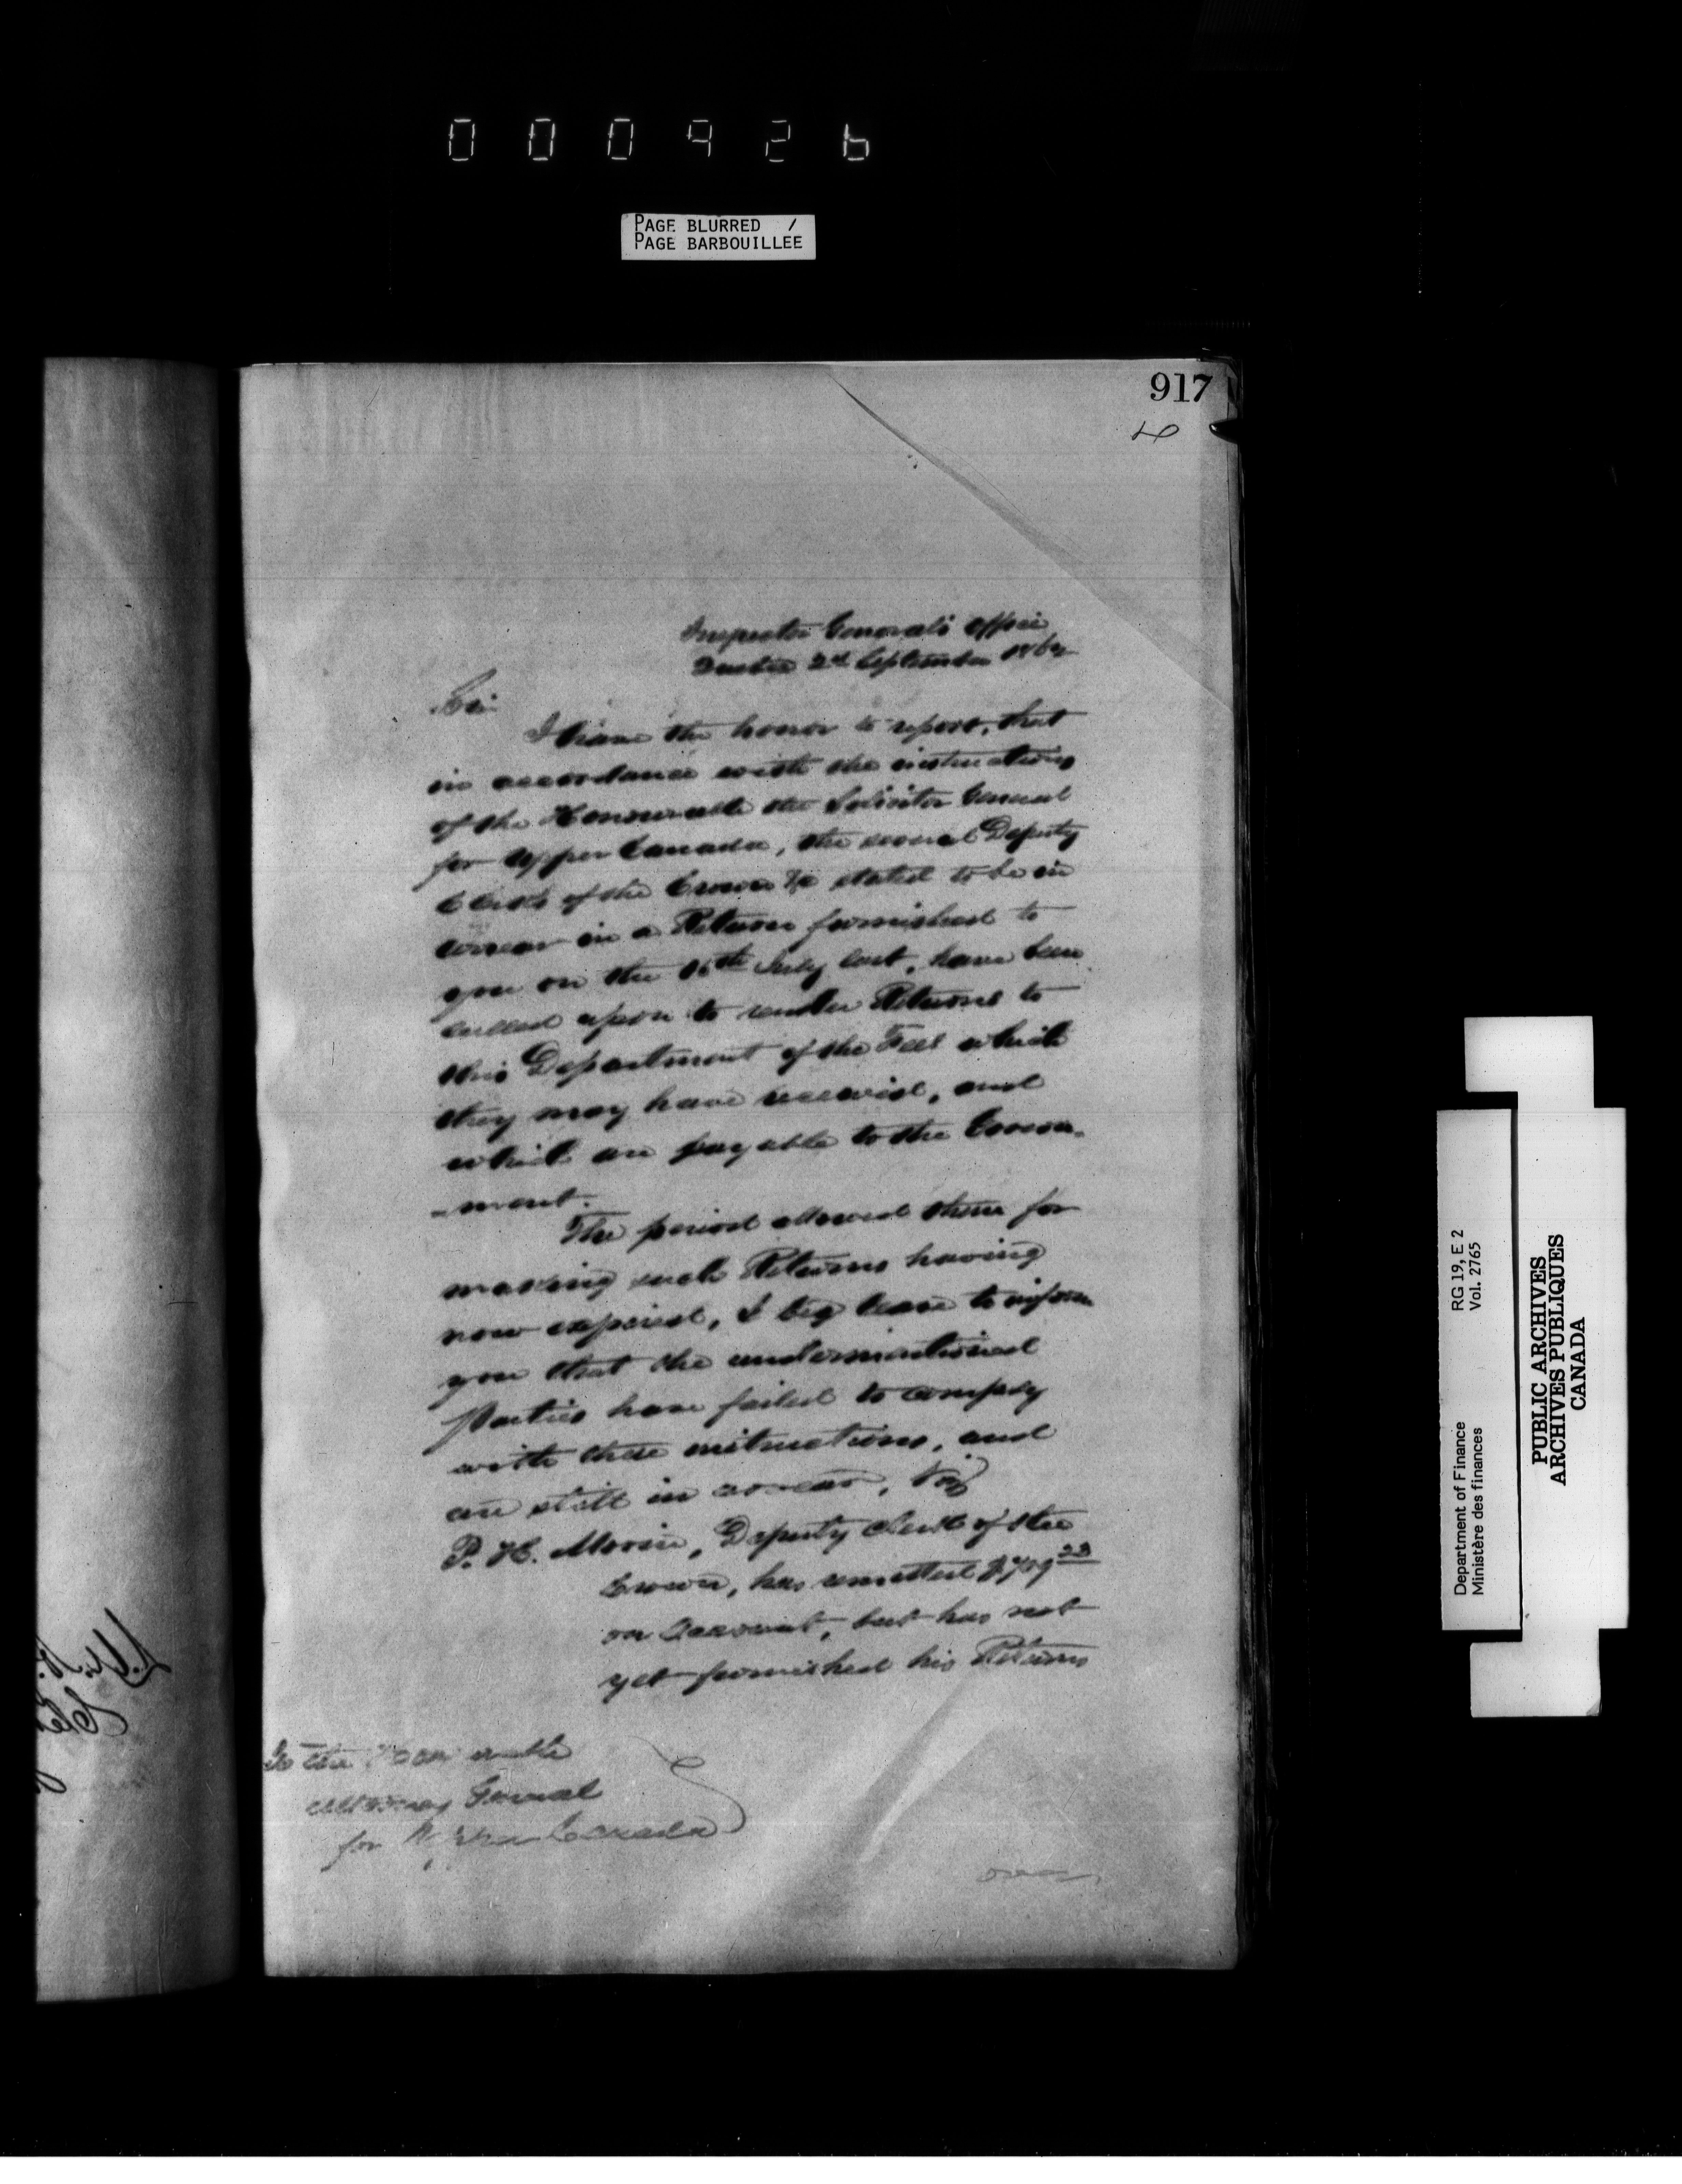 000926
PAGE BLURRED /
PAGE BARBOUILLEE
917
Inspector General's Office
Quebec 2d September 186
Sir
I have the honor to report, that
in accordance with the instructions
of the Honourable the Solicitor General
for Upper Canada, the several Deputy
Clerks of the Crown &c stated to be in
arrear in a Return furnished to
you on the 16th July last, have been
called upon to render Returns to
this Department of the Fees which
they may have received, and
which are payable to the Govern-
-ment.
The period allowed them for
making such Returns having
now expired, I beg leave to inform
you that the undermentioned
Parties have failed to comply
with these instructions, and
are still in arrear, Viz
P. H. Morin, Deputy Clerk of the
Crown, has remitted $709 23
on Account, but has not
yet furnished his Returns
To the Honourable
Attorney General
for Upper Canada
over
Department of Finance RG 19, E 2
Ministère des finances Vol. 2765
PUBLIC ARCHIVES
ARCHIVES PUBLIQUES
CANADA